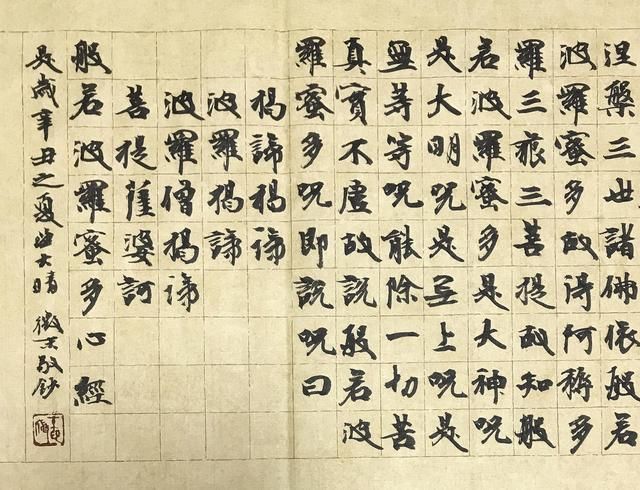 涅槃三世諸佛依般若
波羅蜜多故得阿耨多
羅三藐三菩提故知般
若波羅蜜多是大神呪
是大明呪是無上呪是
無等等呪能除一切苦
真實不虛故說般若波
羅蜜多呪即說呪曰
揭諦揭諦
波羅揭諦
波羅僧揭諦
菩提薩婆訶
般若波羅蜜多心經
是歲辛丑之夏大晴 敬鈔